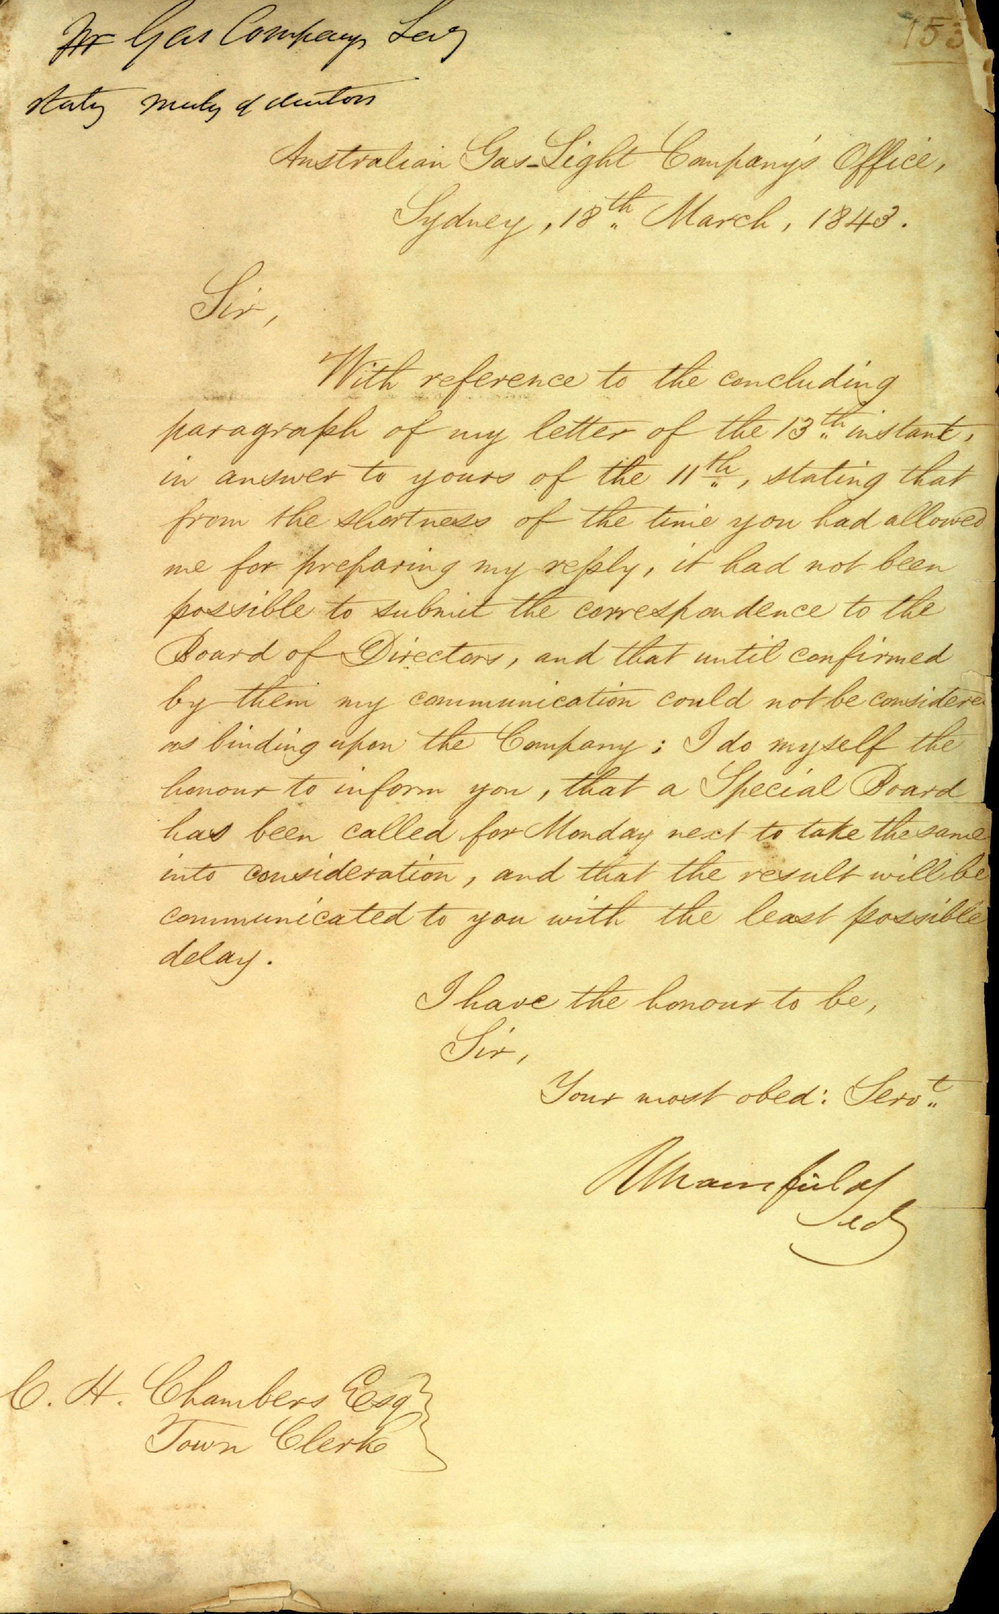 Gas Company Secy
153
stating meetg of directors
Australian Gas-Light Company's Office,
Sydney, 18th March, 1843.
Sir,
With reference to the concluding
paragraph of my letter of the 13th instant,
in answer to yours of the 11th, stating that
from the shortness of the time you had allowed
me for preparing my reply, it had not been
possible to submit the correspondence to the
Board of Directors, and that until confirmed
by them my communication could not be considere
as binding upon the Company; I do myself the
honour to inform you, that a Special Board
has been called for Monday next to take the same
into consideration, and that the result will be
communicated to you with the least possible
delay.
I have the honour to be,
Sir,
Your most obed: Servt
R Mansfield
Secy
C. H. Chambers Esq
Town Clerk